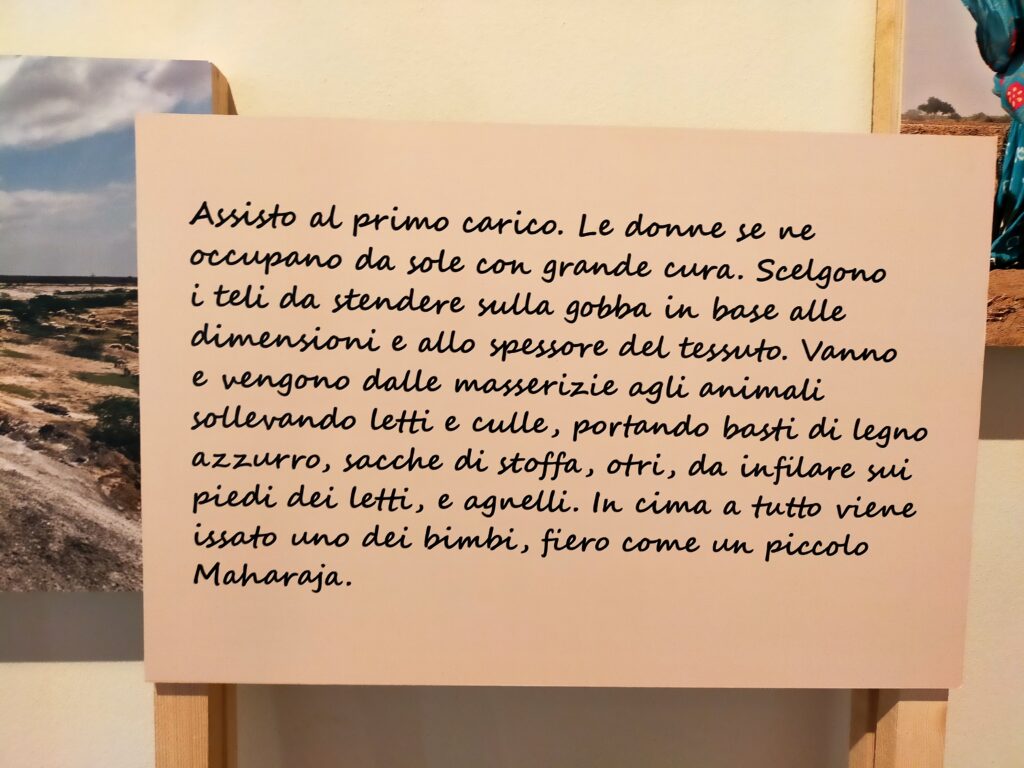 Assisto al primo carico. Le donne se ne
occupano da sole con grande cura. Scelgono
i teli da stendere sulla gobba in base alle
dimensioni e allo spessore del tessuto. Vanno
e vengono dalle masserizie agli animali
sollevando letti e culle, portando basti di legno
azzurro, sacche di stoffa, otri, da infilare sui
piedi dei letti, e agnelli. In cima a tutto viene
issato uno dei bimbi, fiero come un piccolo
Maharaja.